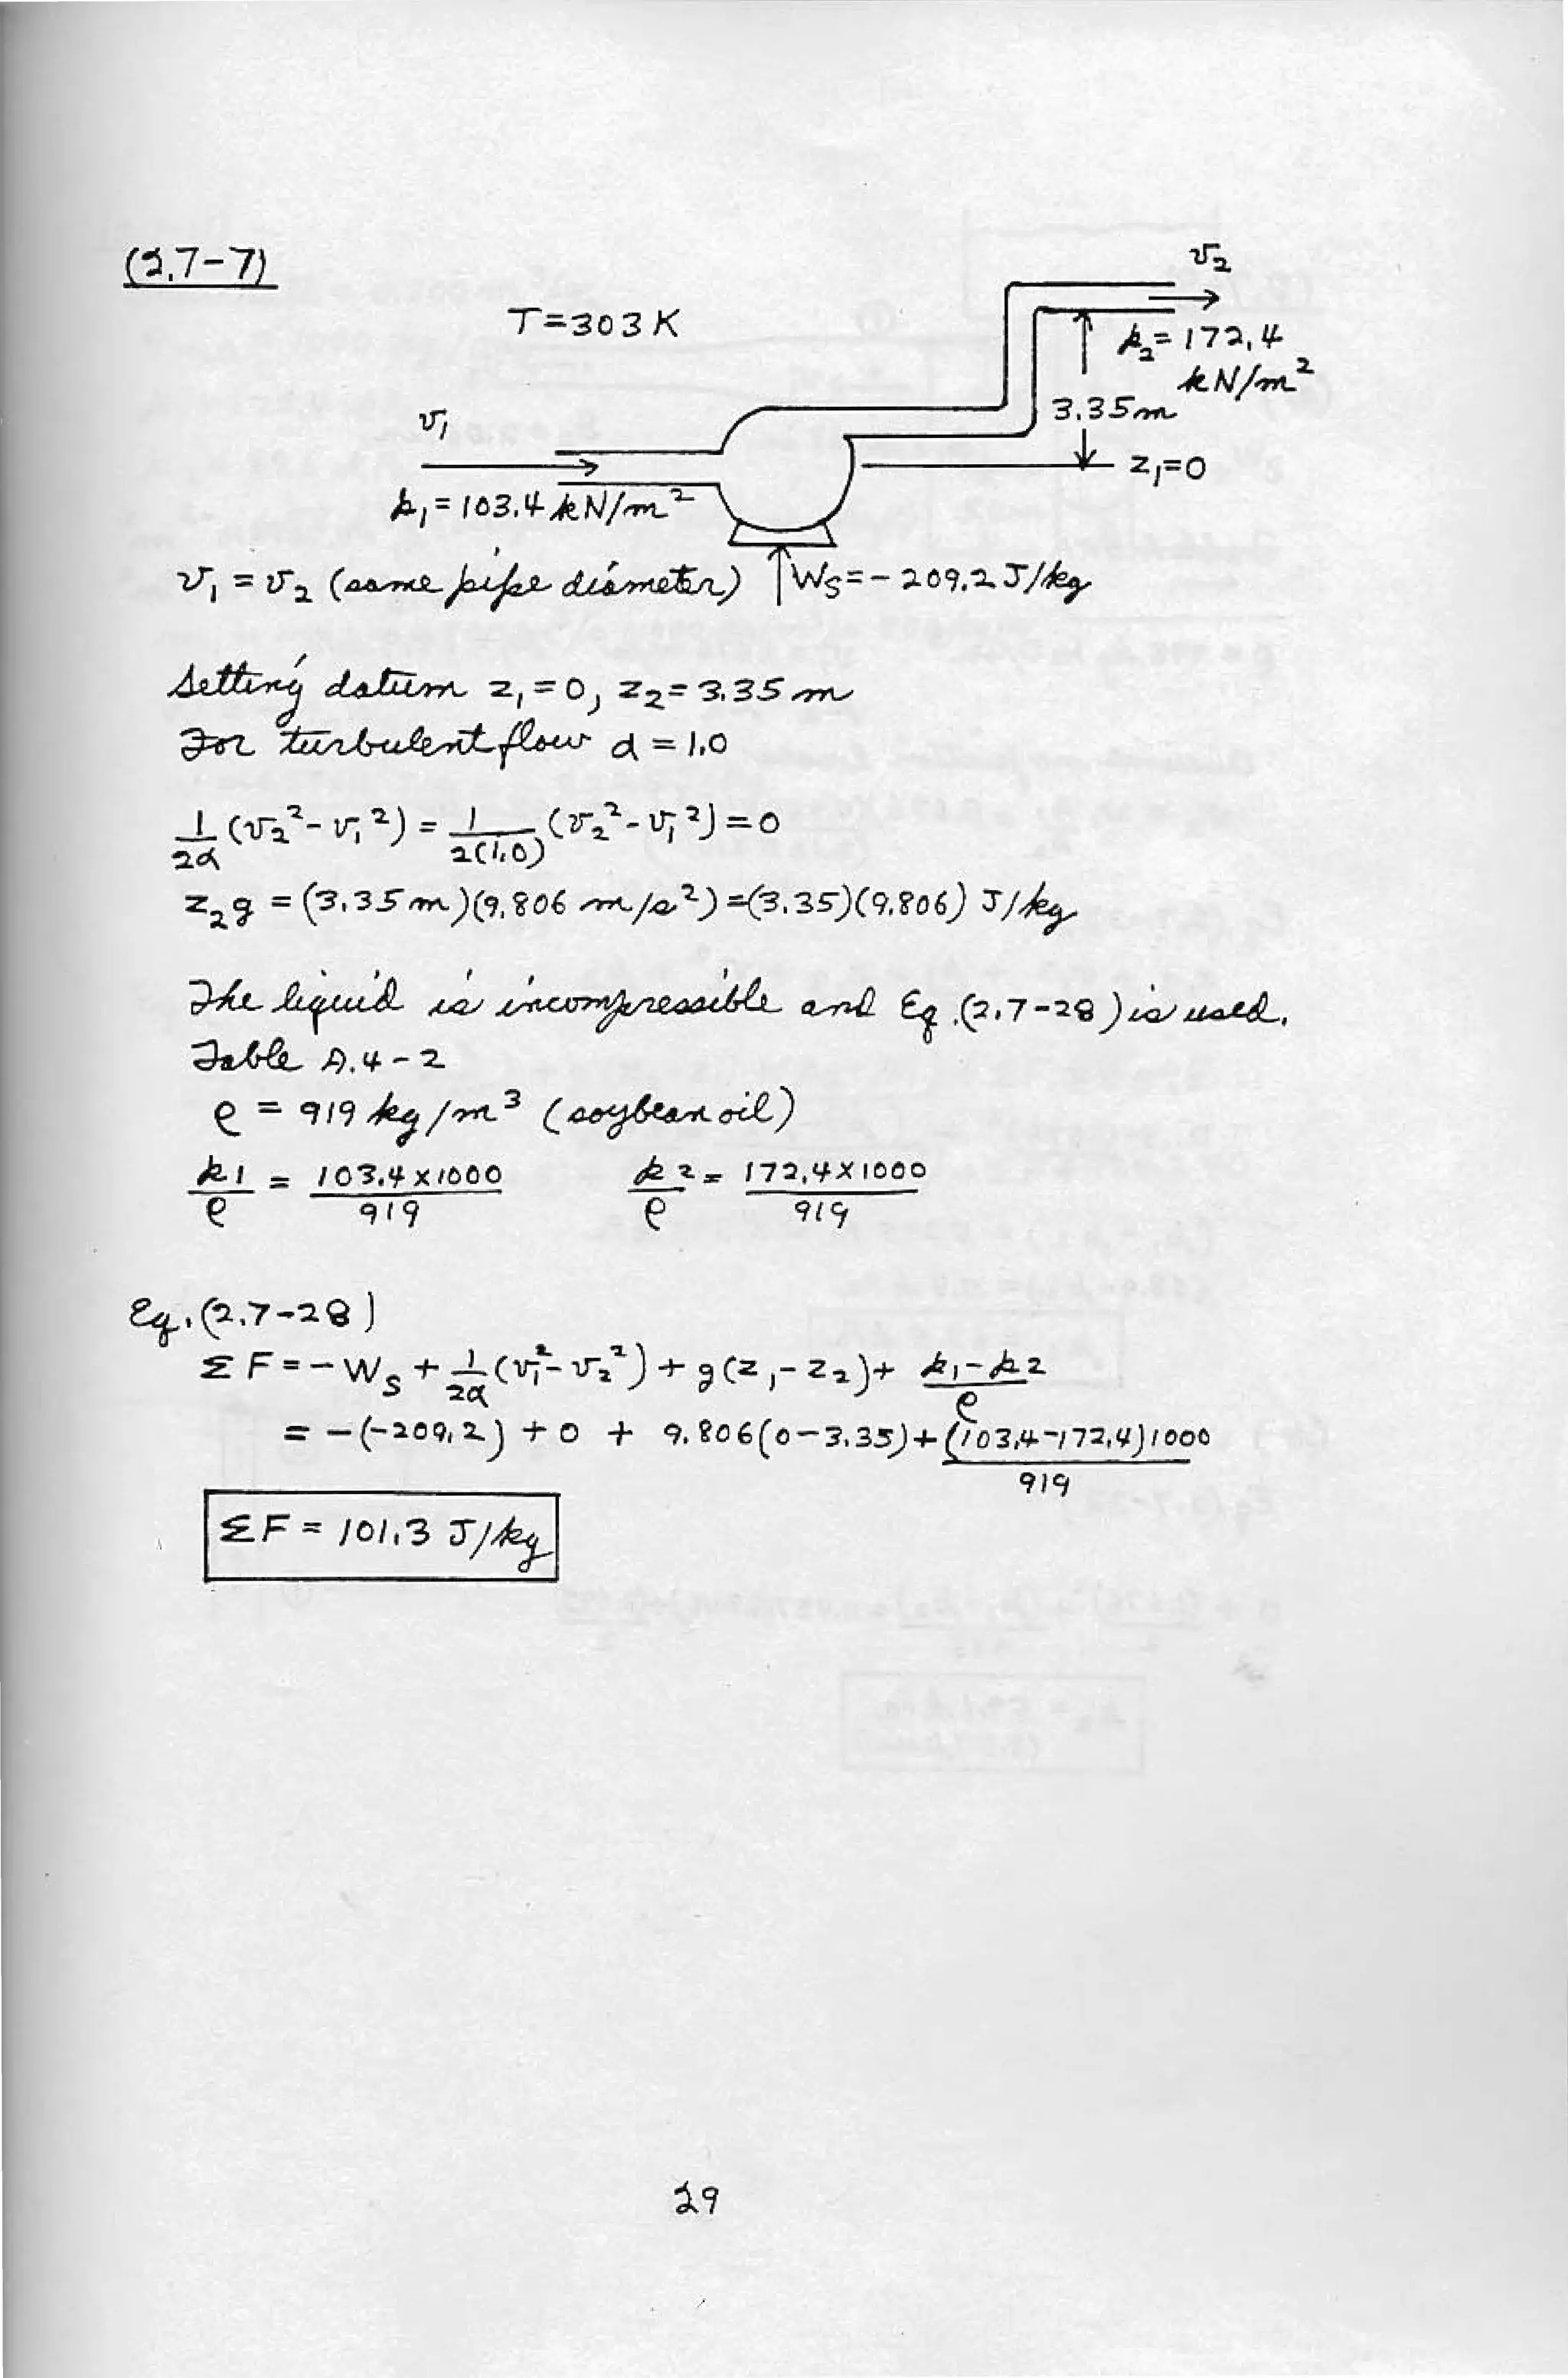 (2.7-7)
v₂
T=303 K
p₂= 172.4
kN/m²
3.35m
v₁
z₁=0
p₁= 103.4 kN/m²
v₁ = v₂ (same pipe diameter) Ws=- 209.2 J/kg
Setting datum z₁=0, z₂= 3.35 m
For turbulent flow α = 1.0
1/2α (v₂²- v₁²) = 1/2(1.0) (v₂²- v₁²)=0
z₂g = (3.35 m)(9.806 m/s²)=(3.35)(9.806) J/kg
The liquid is incompressible and Eq.(2.7-28) is used.
Table A.4-2
ρ = 919 kg/m³ (soybean oil)
p1/ρ = 103.4x1000/919 p2/ρ = 172.4x1000/919
Eq.(2.7-28)
ΣF=-Ws + 1/2α (v₁²- v₂²)+ g(z₁- z₂)+ p1-p2/ρ
= -(-209.2) + 0 + 9.806(0-3.35)+ (103.4-172.4)1000/919
ΣF= 101.3 J/kg
29